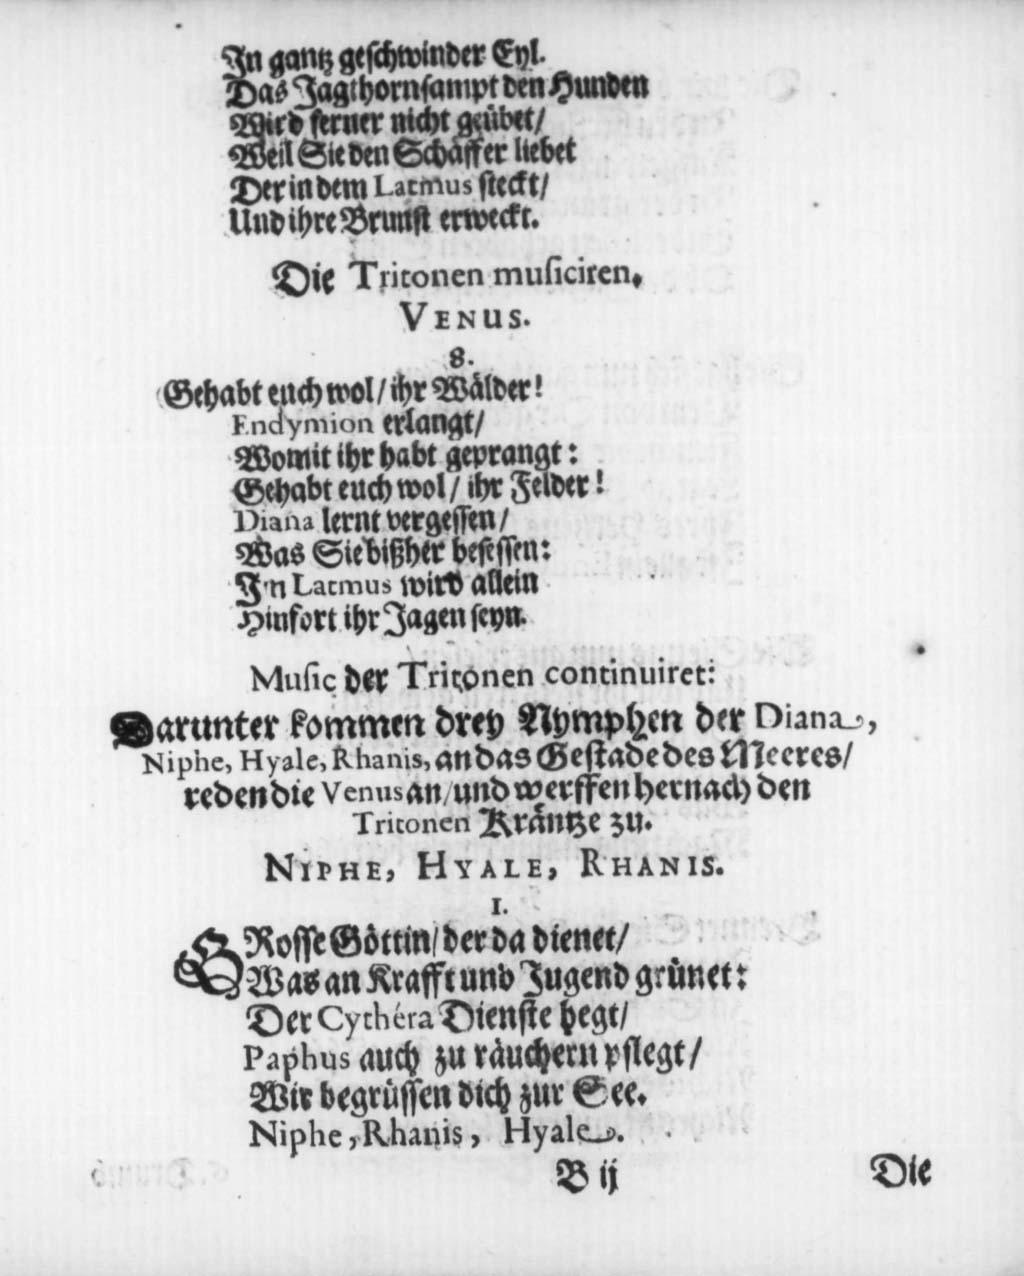 In gantz geschwinder Eyl.
Das Jagthorn sampt den Hunden
Wird ferner nicht geübet/
Weil Sie den Schäffer liebet
Der in dem Latmus steckt/
Und ihre Brunst erweckt.
Die Tritonen musiciren.
VENUS.
8.
Gehabt euch wol/ ihr Wälder!
Endymion erlangt/
Womit ihr habt geprangt:
Gehabt euch wol/ ihr Felder!
Diana lernt vergessen/
Was Sie bißher besessen:
In Latmus wird allein
Hinfort ihr Jagen seyn.
Music der Tritonen continuiret:
Darunter kommen drey Nymphen der Diana,
Niphe, Hyale, Rhanis, an das Gestade des Meeres/
reden die Venus an/ und werffen hernach den
Tritonen Kräntze zu.
NIPHE, HYALE, RHANIS.
1.
GRosse Göttin/ der da dienet/
Was an Krafft und Jugend grünet:
Der Cythéra Dienste hegt/
Paphus auch zu räuchern pflegt/
Wir begrüssen dich zur See.
Niphe, Rhanis, Hyale.
B ij
Die